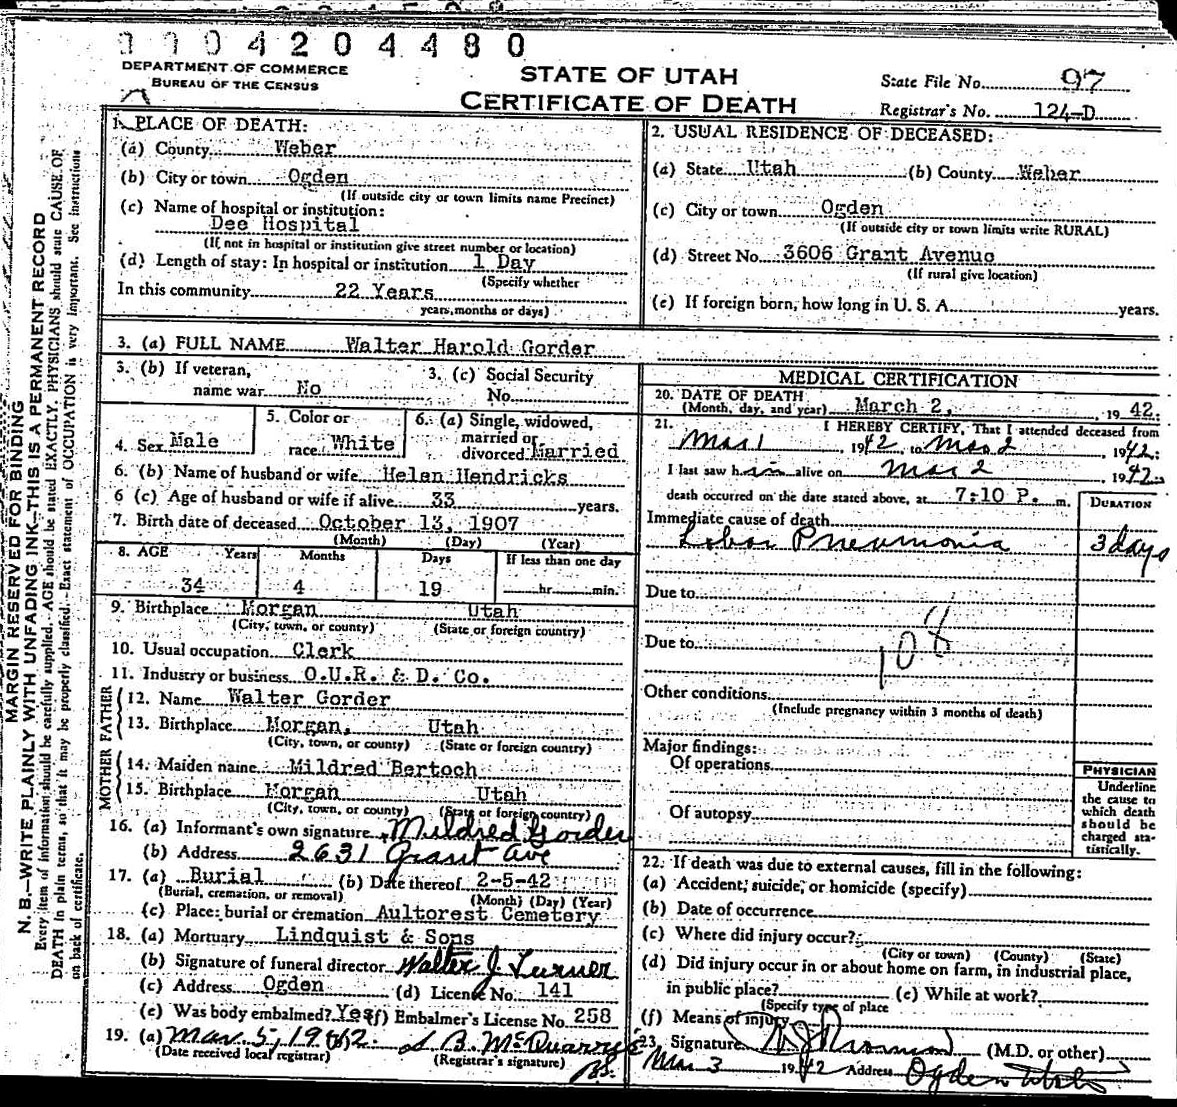 0 0 0 4 2 0 4 4 8 0
DEPARTMENT OF COMMERCE
BUREAU OF THE CENSUS
STATE OF UTAH
CERTIFICATE OF DEATH
State File No. 97
Registrar's No. 124-D
MARGIN RESERVED FOR BINDING
N. B.—WRITE PLAINLY WITH UNFADING INK—THIS IS A PERMANENT RECORD
Every item of information should be carefully supplied. AGE should be stated EXACTLY. PHYSICIANS should state CAUSE OF
DEATH in plain terms, so that it may be properly classified. Exact statement of OCCUPATION is very important. See instructions
on back of certificate.
1. PLACE OF DEATH:
(a) County Weber
(b) City or town Ogden
(If outside city or town limits name Precinct)
(c) Name of hospital or institution:
Dee Hospital
(If not in hospital or institution give street number or location)
(d) Length of stay: In hospital or institution 1 Day
(Specify whether
In this community 22 Years
years, months or days)
2. USUAL RESIDENCE OF DECEASED:
(a) State Utah (b) County Weber
(c) City or town Ogden
(If outside city or town limits write RURAL)
(d) Street No. 3606 Grant Avenue
(If rural give location)
(e) If foreign born, how long in U. S. A. years.
3. (a) FULL NAME Walter Harold Gorder
3. (b) If veteran, name war No
3. (c) Social Security No.
4. Sex Male
5. Color or race White
6. (a) Single, widowed, married or divorced Married
6. (b) Name of husband or wife Helen Hendricks
6 (c) Age of husband or wife if alive 33 years.
7. Birth date of deceased October 13, 1907
(Month) (Day) (Year)
8. AGE Years Months Days If less than one day
34 4 19 hr. min.
9. Birthplace Morgan Utah
(City, town, or county) (State or foreign country)
10. Usual occupation Clerk
11. Industry or business O.U.R. & D. Co.
FATHER
12. Name Walter Gorder
13. Birthplace Morgan, Utah
(City, town, or county) (State or foreign country)
MOTHER
14. Maiden name Mildred Bertoch
15. Birthplace Morgan Utah
(City, town, or county) (State or foreign country)
16. (a) Informant's own signature Mildred Gorder
(b) Address 2631 Grant Ave
17. (a) Burial (b) Date thereof 2-5-42
(Burial, cremation, or removal) (Month) (Day) (Year)
(c) Place: burial or cremation Aultorest Cemetery
18. (a) Mortuary Lindquist & Sons
(b) Signature of funeral director Walter J. Turner
(c) Address Ogden (d) License No. 141
(e) Was body embalmed? Yes (f) Embalmer's License No. 258
19. (a) Mar. 5, 1942. B. McQuarrie
(Date received local registrar) (Registrar's signature)
MEDICAL CERTIFICATION
20. DATE OF DEATH
(Month, day, and year) March 2, 19 42.
21. I HEREBY CERTIFY, That I attended deceased from
Mar 1 1942 to Mar 2 1942:
I last saw him alive on Mar 2 1942.
death occurred on the date stated above, at 7:10 P. m.
DURATION
Immediate cause of death
Lobar Pneumonia 3 days
Due to
Due to
108
Other conditions
(Include pregnancy within 3 months of death)
Major findings:
Of operations
Of autopsy
PHYSICIAN
Underline
the cause to
which death
should be
charged sta-
tistically.
22. If death was due to external causes, fill in the following:
(a) Accident, suicide, or homicide (specify)
(b) Date of occurrence
(c) Where did injury occur?
(City or town) (County) (State)
(d) Did injury occur in or about home on farm, in industrial place,
in public place? (e) While at work?
(Specify type of place
(f) Means of injury
23. Signature (M.D. or other)
Mar 3 1942 Address Ogden Utah